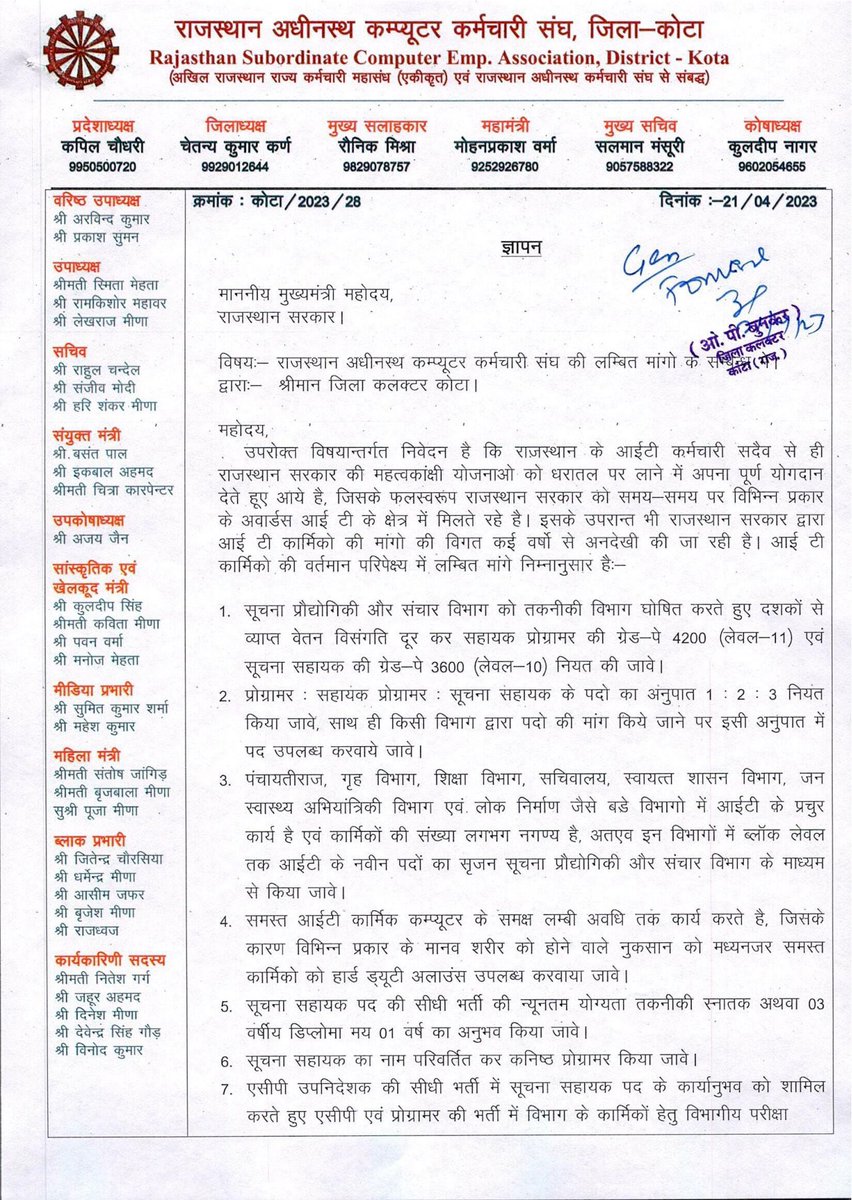 राजस्थान अधीनस्थ कम्प्यूटर कर्मचारी संघ, जिला–कोटा
Rajasthan Subordinate Computer Emp. Association, District - Kota
(अखिल राजस्थान राज्य कर्मचारी महासंघ (एकीकृत) एवं राजस्थान अधीनस्थ कर्मचारी संघ से संबद्ध)
प्रदेशाध्यक्ष जिलाध्यक्ष मुख्य सलाहकार महामंत्री मुख्य सचिव कोषाध्यक्ष
कपिल चौधरी चेतन्य कुमार कर्ण रौनिक मिश्रा मोहनप्रकाश वर्मा सलमान मंसूरी कुलदीप नागर
9950500720 9929012644 9829078757 9252926780 9057588322 9602054655
वरिष्ठ उपाध्यक्ष
श्री अरविन्द कुमार
श्री प्रकाश सुमन
उपाध्यक्ष
श्रीमती स्मिता मेहता
श्री रामकिशोर महावर
श्री लेखराज मीणा
सचिव
श्री राहुल चन्देल
श्री संजीव मोदी
श्री हरि शंकर मीणा
संयुक्त मंत्री
श्री बसंत पाल
श्री इकबाल अहमद
श्रीमती चित्रा कारपेन्टर
उपकोषाध्यक्ष
श्री अजय जैन
सांस्कृतिक एवं
खेलकूद मंत्री
श्री कुलदीप सिंह
श्रीमती कविता मीणा
श्री पवन वर्मा
श्री मनोज मेहता
मीडिया प्रभारी
श्री सुमित कुमार शर्मा
श्री महेश कुमार
महिला मंत्री
श्रीमती संतोष जांगिड़
श्रीमती बृजबाला मीणा
सुश्री पूजा मीणा
ब्लाक प्रभारी
श्री जितेन्द्र चौरसिया
श्री धर्मेन्द्र मीणा
श्री आसीम जफर
श्री बृजेश मीणा
श्री राजध्वज
कार्यकारिणी सदस्य
श्रीमती नितेश गर्ग
श्री जहूर अहमद
श्री दिनेश मीणा
श्री देवेन्द्र सिंह गौड़
श्री विनोद कुमार
क्रमांक : कोटा/2023/28 दिनांक :–21/04/2023
ज्ञापन
माननीय मुख्यमंत्री महोदय,
राजस्थान सरकार।
(ओ. पी. बुनकर)
जिला कलक्टर
कोटा (राज.)
विषयः– राजस्थान अधीनस्थ कम्प्यूटर कर्मचारी संघ की लम्बित मांगो के
द्वाराः– श्रीमान जिला कलक्टर कोटा।
महोदय,
उपरोक्त विषयान्तर्गत निवेदन है कि राजस्थान के आईटी कर्मचारी सदैव से ही
राजस्थान सरकार की महत्वकांक्षी योजनाओ को धरातल पर लाने में अपना पूर्ण योगदान
देते हूए आये है, जिसके फलस्वरूप राजस्थान सरकार को समय–समय पर विभिन्न प्रकार
के अवार्डस आई टी के क्षेत्र में मिलते रहे है। इसके उपरान्त भी राजस्थान सरकार द्वारा
आई टी कार्मिको की मांगो की विगत कई वर्षो से अनदेखी की जा रही है। आई टी
कार्मिको की वर्तमान परिपेक्ष्य में लम्बित मांगे निम्नानुसार हैः–
1. सूचना प्रौद्योगिकी और संचार विभाग को तकनीकी विभाग घोषित करते हुए दशकों से
व्याप्त वेतन विसंगति दूर कर सहायक प्रोग्रामर की ग्रेड–पे 4200 (लेवल–11) एवं
सूचना सहायक की ग्रेड–पे 3600 (लेवल–10) नियत की जावे।
2. प्रोग्रामर : सहायक प्रोग्रामर : सूचना सहायक के पदो का अनुपात 1 : 2 : 3 नियत
किया जावे, साथ ही किसी विभाग द्वारा पदो की मांग किये जाने पर इसी अनुपात में
पद उपलब्ध करवाये जावे।
3. पंचायतीराज, गृह विभाग, शिक्षा विभाग, सचिवालय, स्वायत्त शासन विभाग, जन
स्वास्थ्य अभियांत्रिकी विभाग एवं लोक निर्माण जैसे बडे विभागो में आईटी के प्रचुर
कार्य है एवं कार्मिकों की संख्या लगभग नगण्य है, अतएव इन विभागों में ब्लॉक लेवल
तक आईटी के नवीन पदों का सृजन सूचना प्रौद्योगिकी और संचार विभाग के माध्यम
से किया जावे।
4. समस्त आईटी कार्मिक कम्प्यूटर के समक्ष लम्बी अवधि तक कार्य करते है, जिसके
कारण विभिन्न प्रकार के मानव शरीर को होने वाले नुकसान को मध्यनजर समस्त
कार्मिको को हार्ड ड्यूटी अलाउंस उपलब्ध करवाया जावे।
5. सूचना सहायक पद की सीधी भर्ती की न्यूनतम योग्यता तकनीकी स्नातक अथवा 03
वर्षीय डिप्लोमा मय 01 वर्ष का अनुभव किया जावे।
6. सूचना सहायक का नाम परिवर्तित कर कनिष्ठ प्रोग्रामर किया जावे।
7. एसीपी उपनिदेशक की सीधी भर्ती में सूचना सहायक पद के कार्यानुभव को शामिल
करते हुए एसीपी एवं प्रोग्रामर की भर्ती में विभाग के कार्मिकों हेतु विभागीय परीक्षा